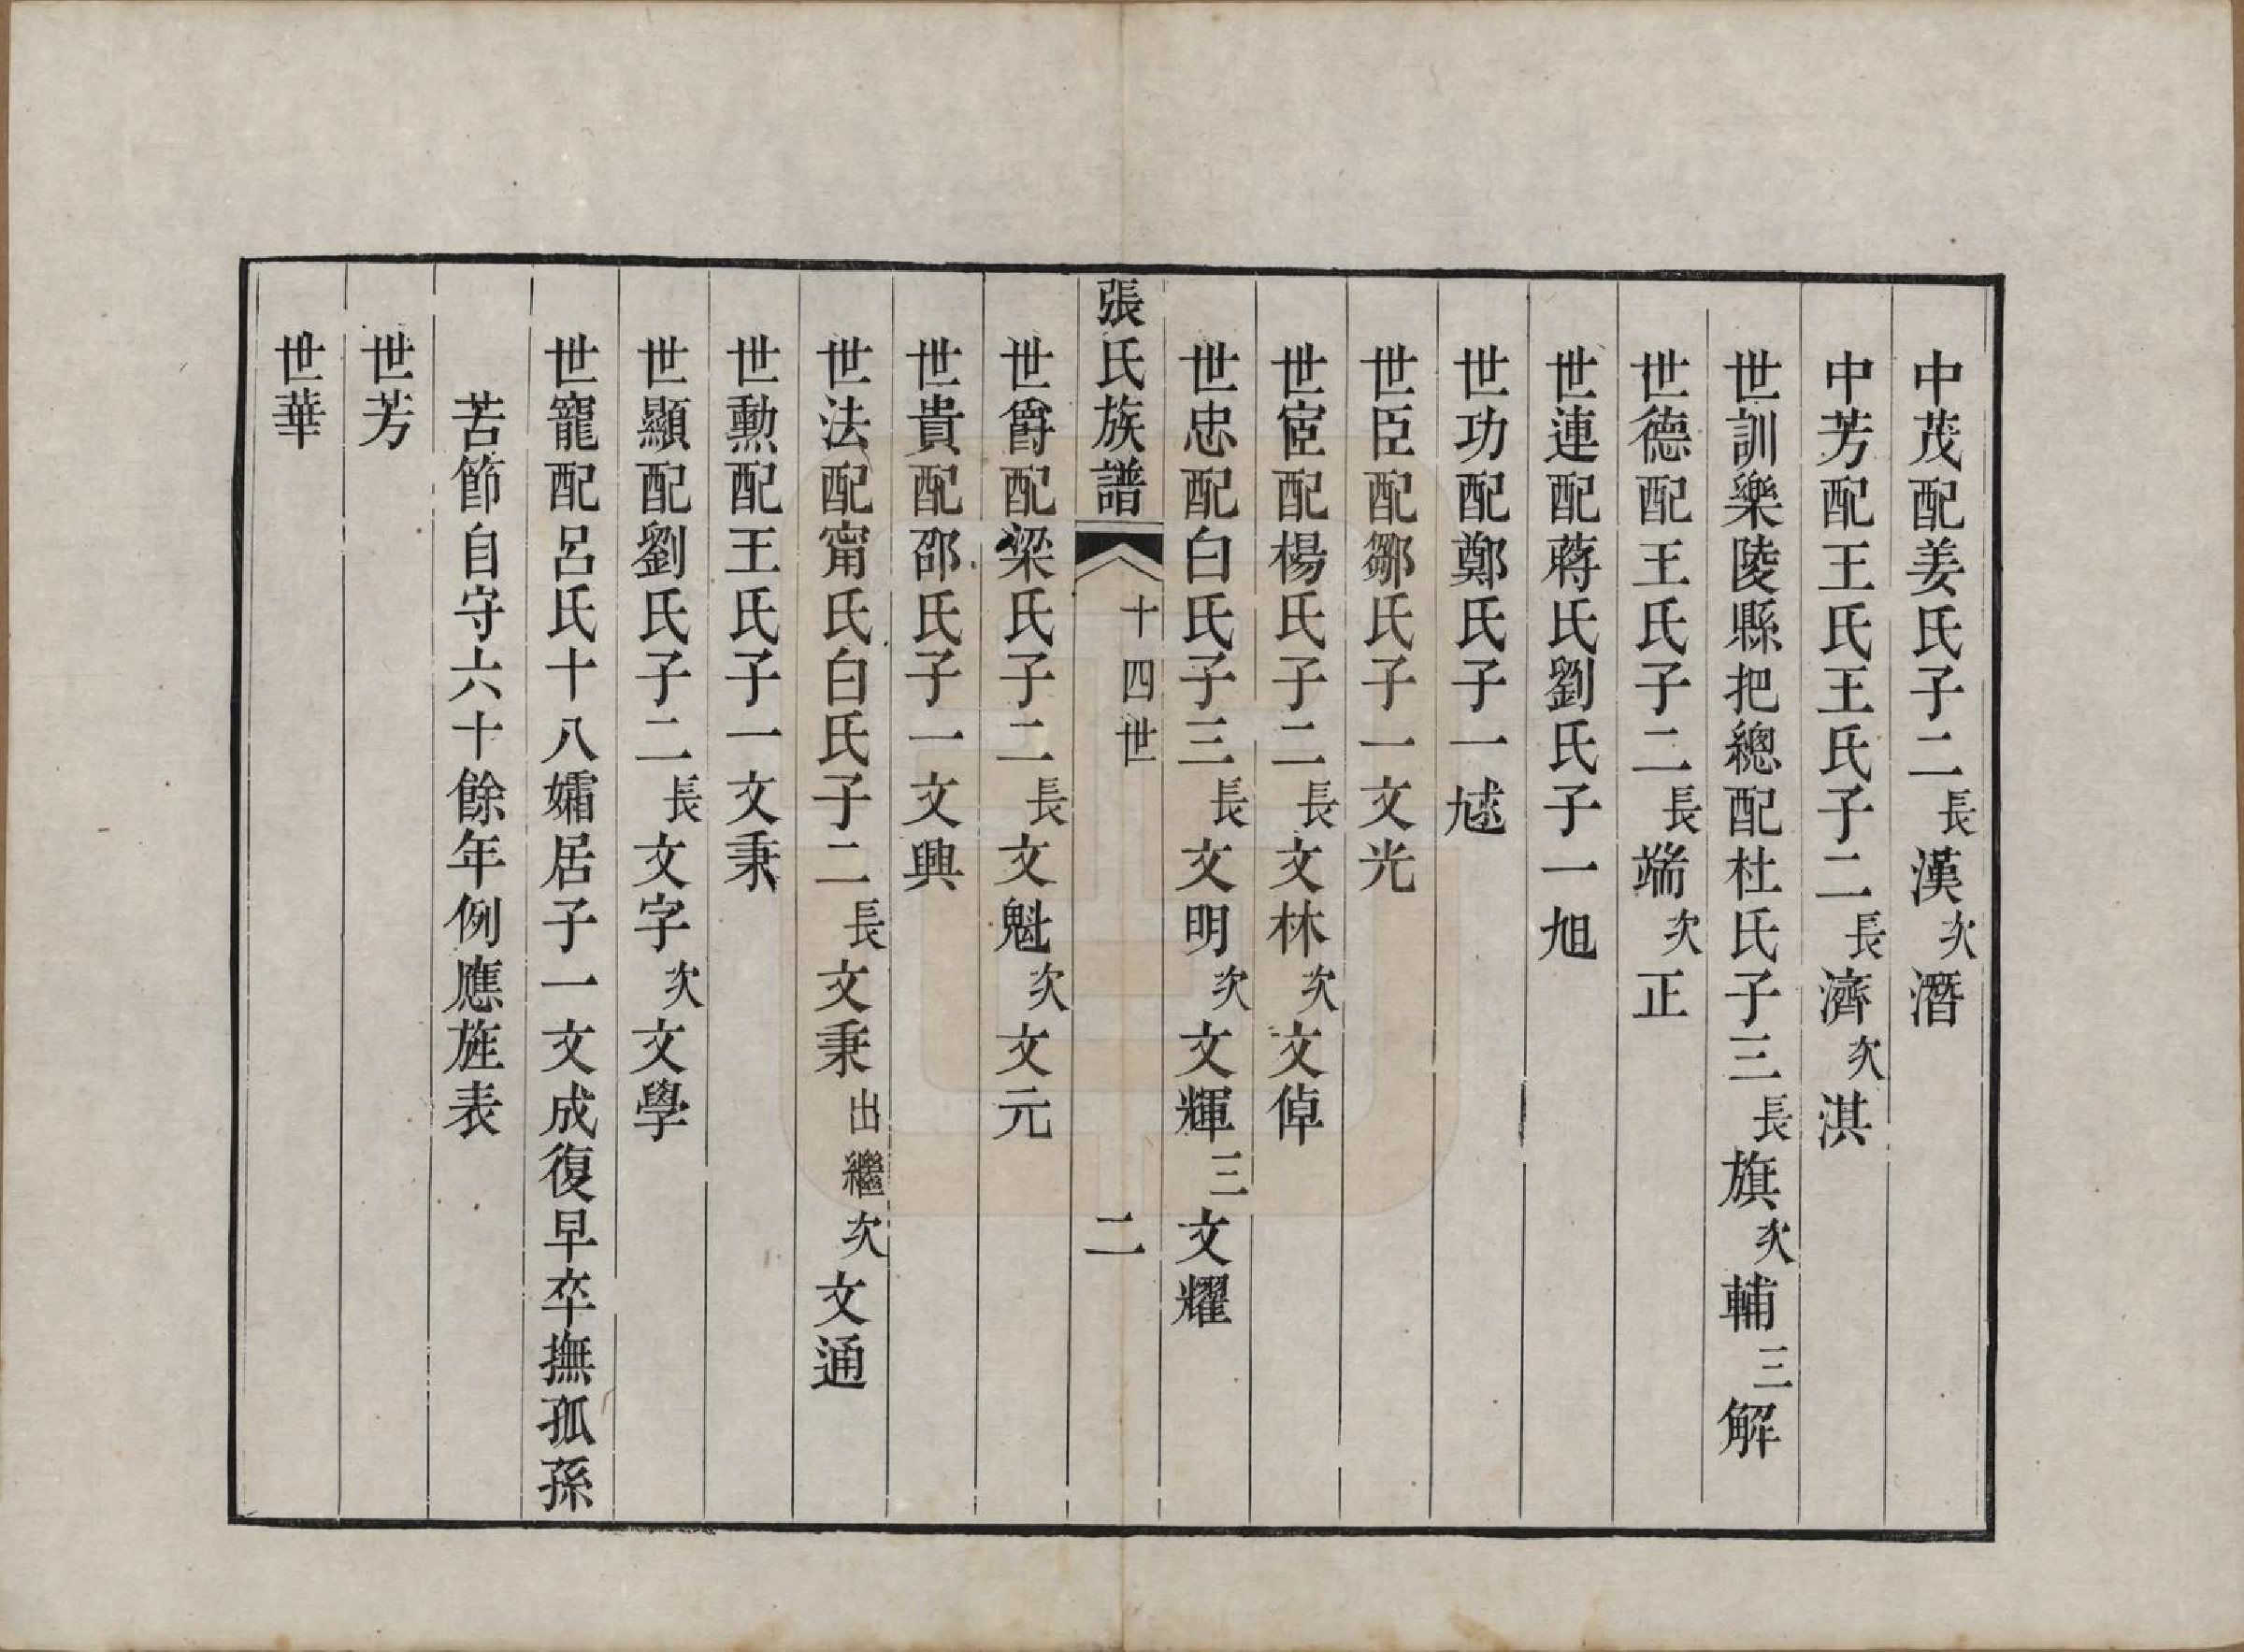 中茂配姜氏子二長漢次潛
中芳配王氏王氏子二長濟次淇
世訓樂陵縣把總配杜氏子三長旗次輔三解
世德配王氏子二長端次正
世連配蔣氏劉氏子一旭
世功配鄭氏子一尳
世臣配鄒氏子一文光
世宦配楊氏子二長文林次文倬
世忠配白氏子三長文明次文輝三文耀
張氏族譜 十四世 二
世爵配梁氏子二長文魁次文元
世貴配邵氏子一文興
世法配甯氏白氏子二長文秉出繼次文通
世勲配王氏子一文秉
世顯配劉氏子二長文字次文學
世寵配呂氏十八孀居子一文成復早卒撫孤孫
苦節自守六十餘年例應旌表
世芳
世華